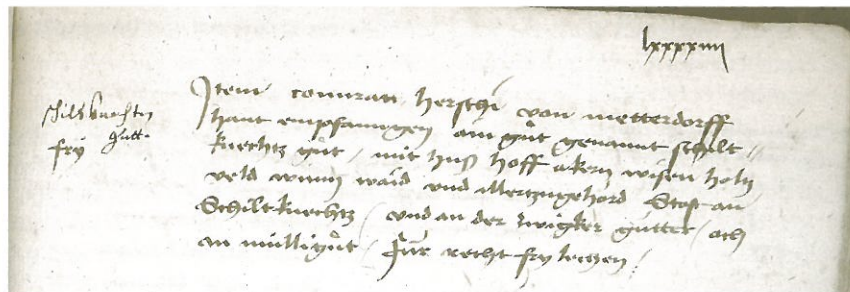 lxxxxiiij
schiltknechtz
fry gutt
Item conrat herschi von metterdorff
hant empfanngen ain gůt genannt schilt
knechtz gůt / mit huß hoff akern wisen holtz
veld wunn waid vnd allerzugehord Stost an
Schiltknechtz / vnd an der zwigker gütter / och
an mülligůt / Für recht fry lechen /